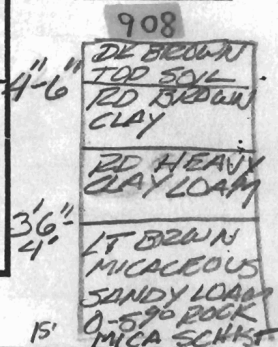 908
DK BROWN
TOP SOIL
4"-6"
RD BROWN
CLAY
RD HEAVY
CLAY LOAM
3'6"-
4'
LT BRWN
MICACEOUS
SANDY LOAM
0-5% ROCK
15'
MICA SCHIST